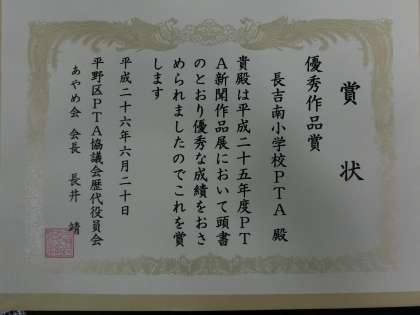 賞状
優秀作品賞
長吉南小学校PTA 殿
貴殿は平成二十五年度PT
A新聞作品展において頭書
のとおり優秀な成績をおさ
められましたのでこれを賞
します
平成二十六年六月二十日
平野区PTA協議会歴代役員会
あやめ会 会長 長井 靖